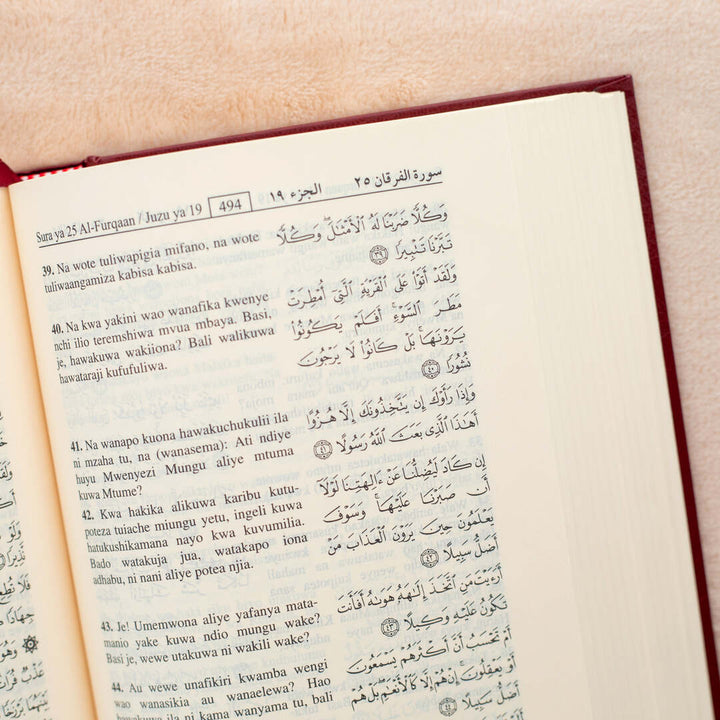 Sura ya 25 Al-Furqaan / Juzu ya 19 494 الجزء ١٩ سورة الفرقان ٢٥
39. Na wote tuliwapigia mifano, na wote
tuliwaangamiza kabisa kabisa.
40. Na kwa yakini wao wanafika kwenye
nchi ilio teremshiwa mvua mbaya. Basi,
je, hawakuwa wakiiona? Bali walikuwa
hawataraji kufufuliwa.
41. Na wanapo kuona hawakuchukulii ila
ni mzaha tu, na (wanasema): Ati ndiye
huyu Mwenyezi Mungu aliye mtuma
kuwa Mtume?
42. Kwa hakika alikuwa karibu kutu-
poteza tuiache miungu yetu, ingeli kuwa
hatukushikamana nayo kwa kuvumilia.
Bado watakuja jua, watakapo iona
adhabu, ni nani aliye potea njia.
43. Je! Umemwona aliye yafanya mata-
manio yake kuwa ndio mungu wake?
Basi je, wewe utakuwa ni wakili wake?
44. Au wewe unafikiri kwamba wengi
wao wanasikia au wanaelewa? Hao
hawakuwa ila ni kama wanyama tu, bali
وَكُلًّا ضَرَبْنَا لَهُ الْأَمْثَالَ وَكُلًّا
تَبَّرْنَا تَتْبِيرًا ٣٩
وَلَقَدْ أَتَوْا عَلَى الْقَرْيَةِ الَّتِي أُمْطِرَتْ
مَطَرَ السَّوْءِ أَفَلَمْ يَكُونُوا
يَرَوْنَهَا بَلْ كَانُوا لَا يَرْجُونَ
نُشُورًا ٤٠
وَإِذَا رَأَوْكَ إِن يَتَّخِذُونَكَ إِلَّا هُزُوًا
أَهَٰذَا الَّذِي بَعَثَ اللَّهُ رَسُولًا ٤١
إِن كَادَ لَيُضِلُّنَا عَنْ آلِهَتِنَا لَوْلَا
أَن صَبَرْنَا عَلَيْهَا وَسَوْفَ
يَعْلَمُونَ حِينَ يَرَوْنَ الْعَذَابَ مَنْ
أَضَلُّ سَبِيلًا ٤٢
أَرَءَيْتَ مَنِ اتَّخَذَ إِلَٰهَهُ هَوَاهُ أَفَأَنتَ
تَكُونُ عَلَيْهِ وَكِيلًا ٤٣
أَمْ تَحْسَبُ أَنَّ أَكْثَرَهُمْ يَسْمَعُونَ
أَوْ يَعْقِلُونَ إِنْ هُمْ إِلَّا كَالْأَنْعَامِ بَلْ هُمْ
أَضَلُّ سَبِيلًا ٤٤